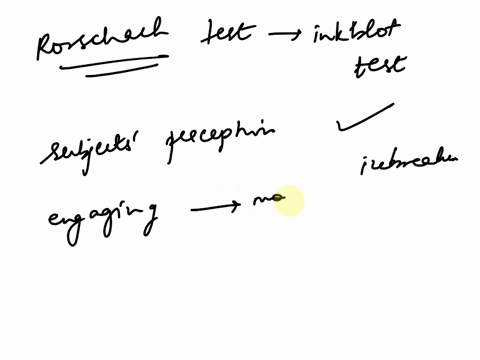 Rorschach test → inkblot
test
subjects' perception ✓
icebreaker
engaging →